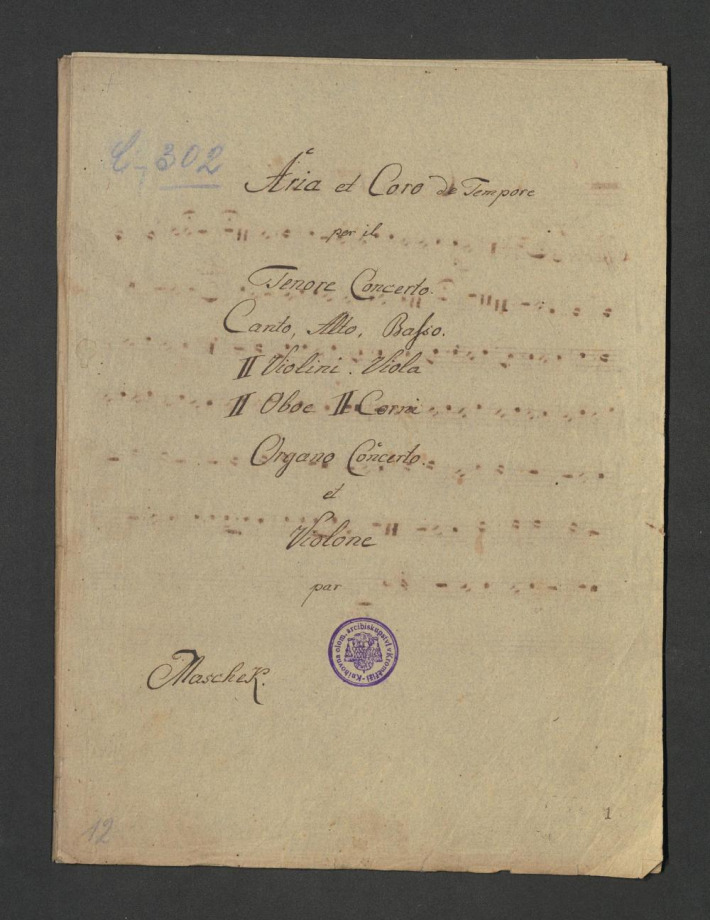 C, 302
Aria et Coro de Tempore
per il
Tenore Concerto.
Canto, Alto, Basso.
II Violini. Viola
II Oboe II Corni
Organo Concerto.
et
Violone
par
Knihovna olom. arcibiskupství v Kroměříži
Maschek.
12
1